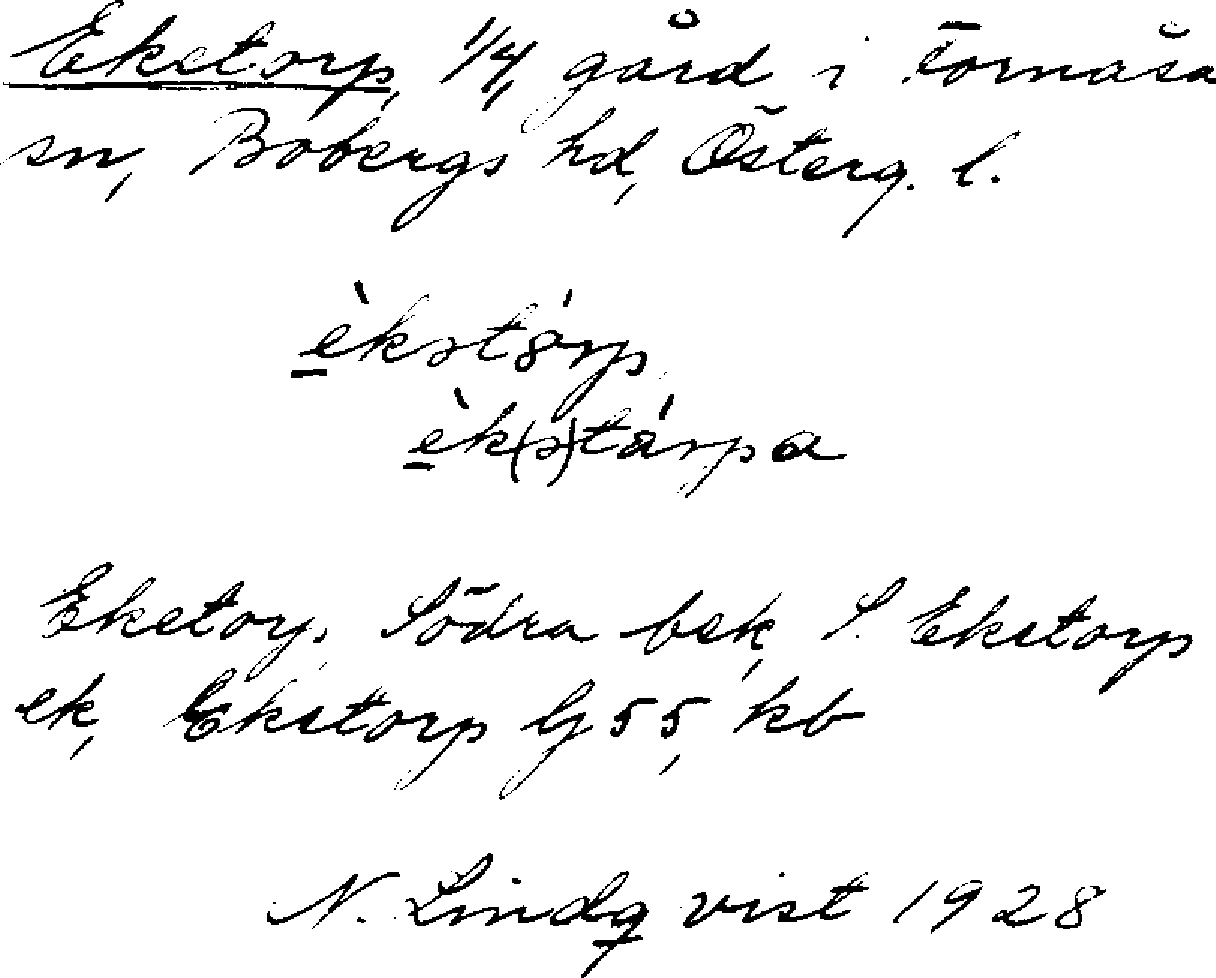 Ekstorp, 1/4, gård i Fornåsa
sn, Bobergs hd, Österg. l.
èkstórp
èk(s)tárpa
Ekstorp, Södra bek, S. Ekstorp
ek, Ekstorp Gj 55, kb
N. Lindqvist 1928